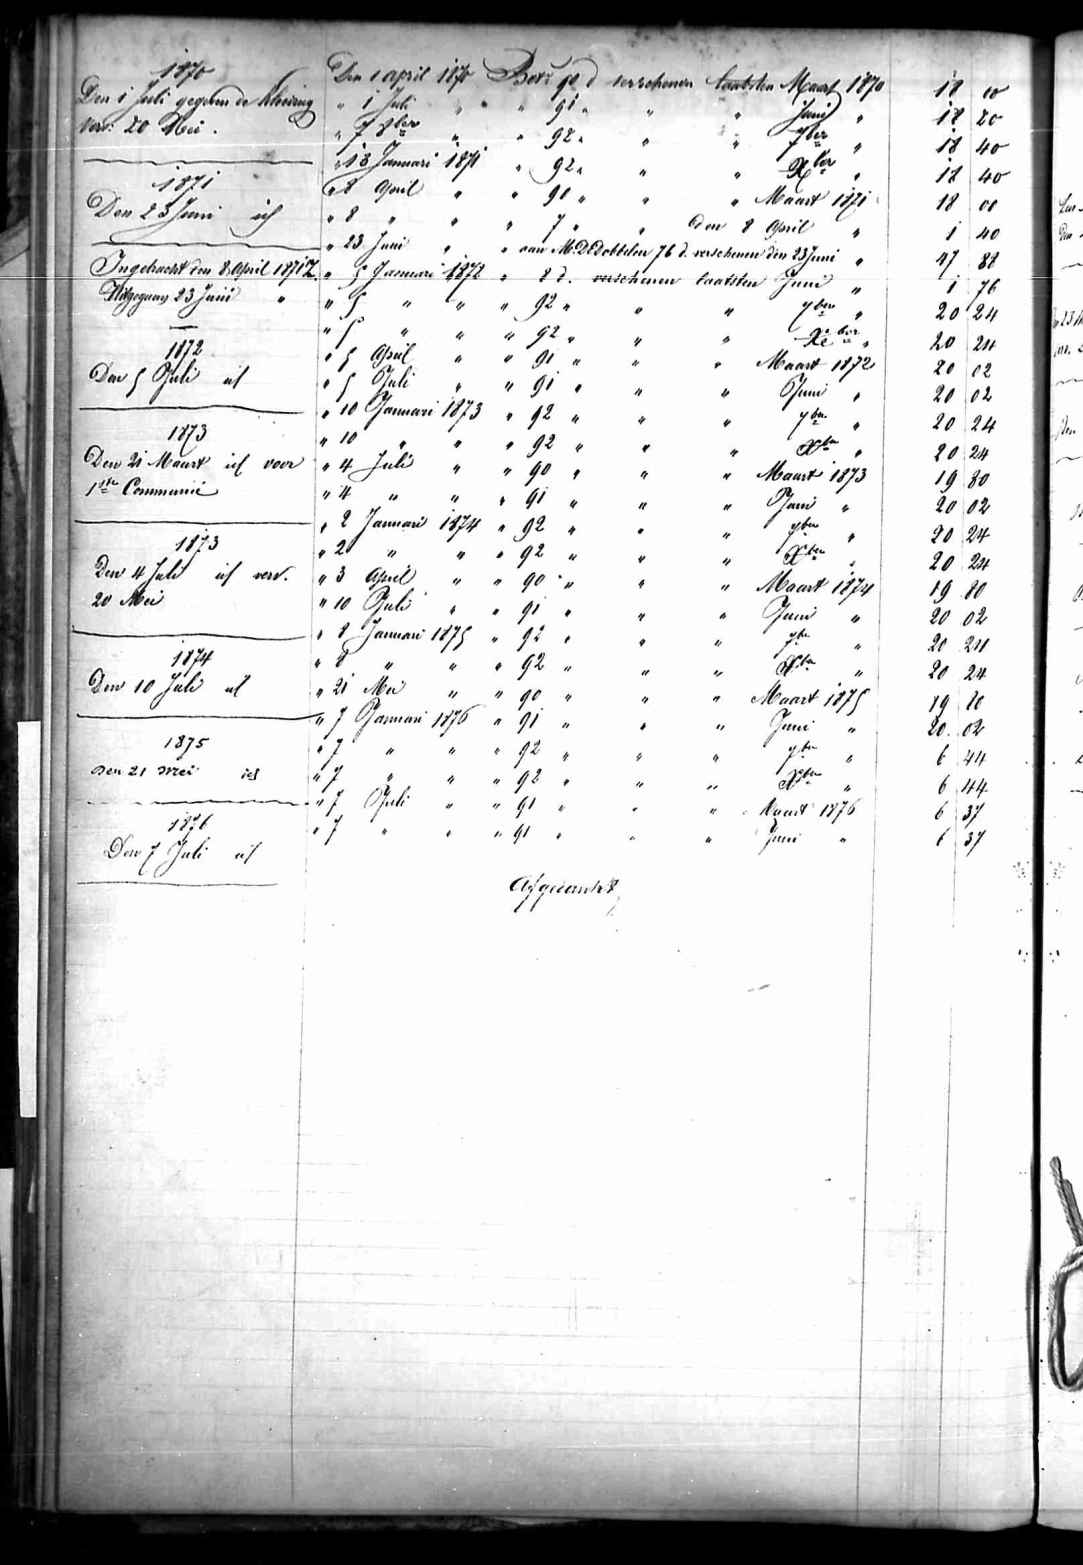 1870
Den 1 Juli gegeven de kleeding
verv. 20 Mei.
1871
Den 23 Juni id
Ingebracht den 8 April 1871
Uitgegaan 23 Juni "
1872
Den 5 Juli id
1873
Den 21 Maart id voor
1ste Communie
1873
Den 4 Juli id verv.
20 Mei
1874
Den 10 Juli id
1875
Den 21 Mei id
1876
Den 7 Juli id
Den 1 April 1870 Bet: 90 d verschenen laatsten Maart 1870 18 00
" 1 Juli " " " 91 " " " Juni " 18 20
" 7 8ber " " 92 " " " 7ber " 18 40
" 13 Januari 1871 " 92 " " " Xber " 18 40
" 8 April " " 90 " " " Maart 1871 18 00
" 8 " " " 7 " " den 8 April " 1 40
" 23 Juni " " aan M. De Dobbelen 76 d. verschenen den 23 Juni " 47 88
" 5 Januari 1872 " 8 d. verschenen laatsten Juni " 1 76
" 5 " " " 92 " " " 7ber " 20 24
" 5 " " " 92 " " " Xber " 20 24
" 5 April " " 91 " " " Maart 1872 20 02
" 5 Juli " " 91 " " " Juni " 20 02
" 10 Januari 1873 " 92 " " " 7ber " 20 24
" 10 " " " 92 " " " Xber " 20 24
" 4 Juli " " 90 " " " Maart 1873 19 80
" 4 " " " 91 " " " Juni " 20 02
" 2 Januari 1874 " 92 " " " 7ber " 20 24
" 2 " " " 92 " " " Xber " 20 24
" 3 April " " 90 " " " Maart 1874 19 80
" 10 Juli " " 91 " " " Juni " 20 02
" 8 Januari 1875 " 92 " " " 7ber " 20 24
" 8 " " " 92 " " " Xber " 20 24
" 21 Mei " " 90 " " " Maart 1875 19 80
" 7 Januari 1876 " 91 " " " Juni " 20 02
" 7 " " " 92 " " " 7ber " 6 44
" 7 " " " 92 " " " Xber " 6 44
" 7 Juli " " 91 " " " Maart 1876 6 37
" 7 " " " 91 " " " Juni " 6 37